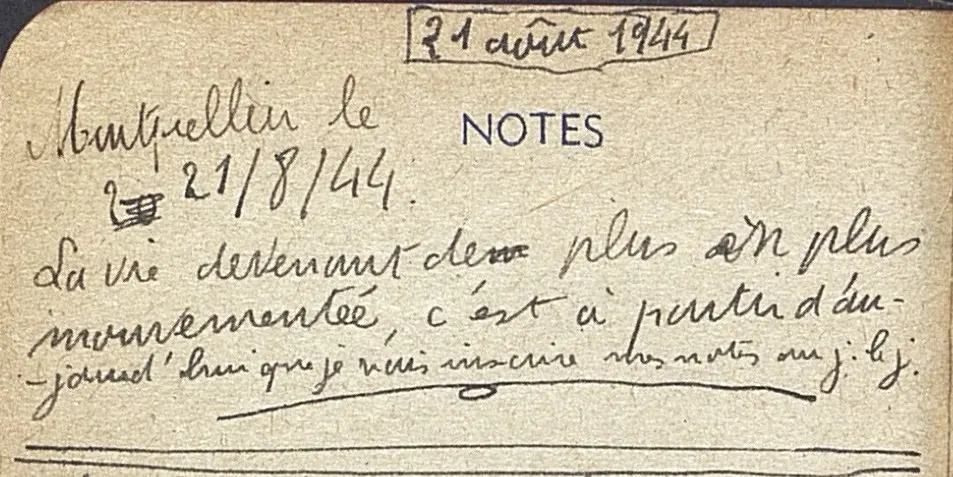 21 août 1944
Montpellier le
NOTES
21/8/44.
La vie devenant de plus en plus
mouvementée, c'est à partir d'au-
-jourd'hui que je vais inscrire mes notes au j. le j.